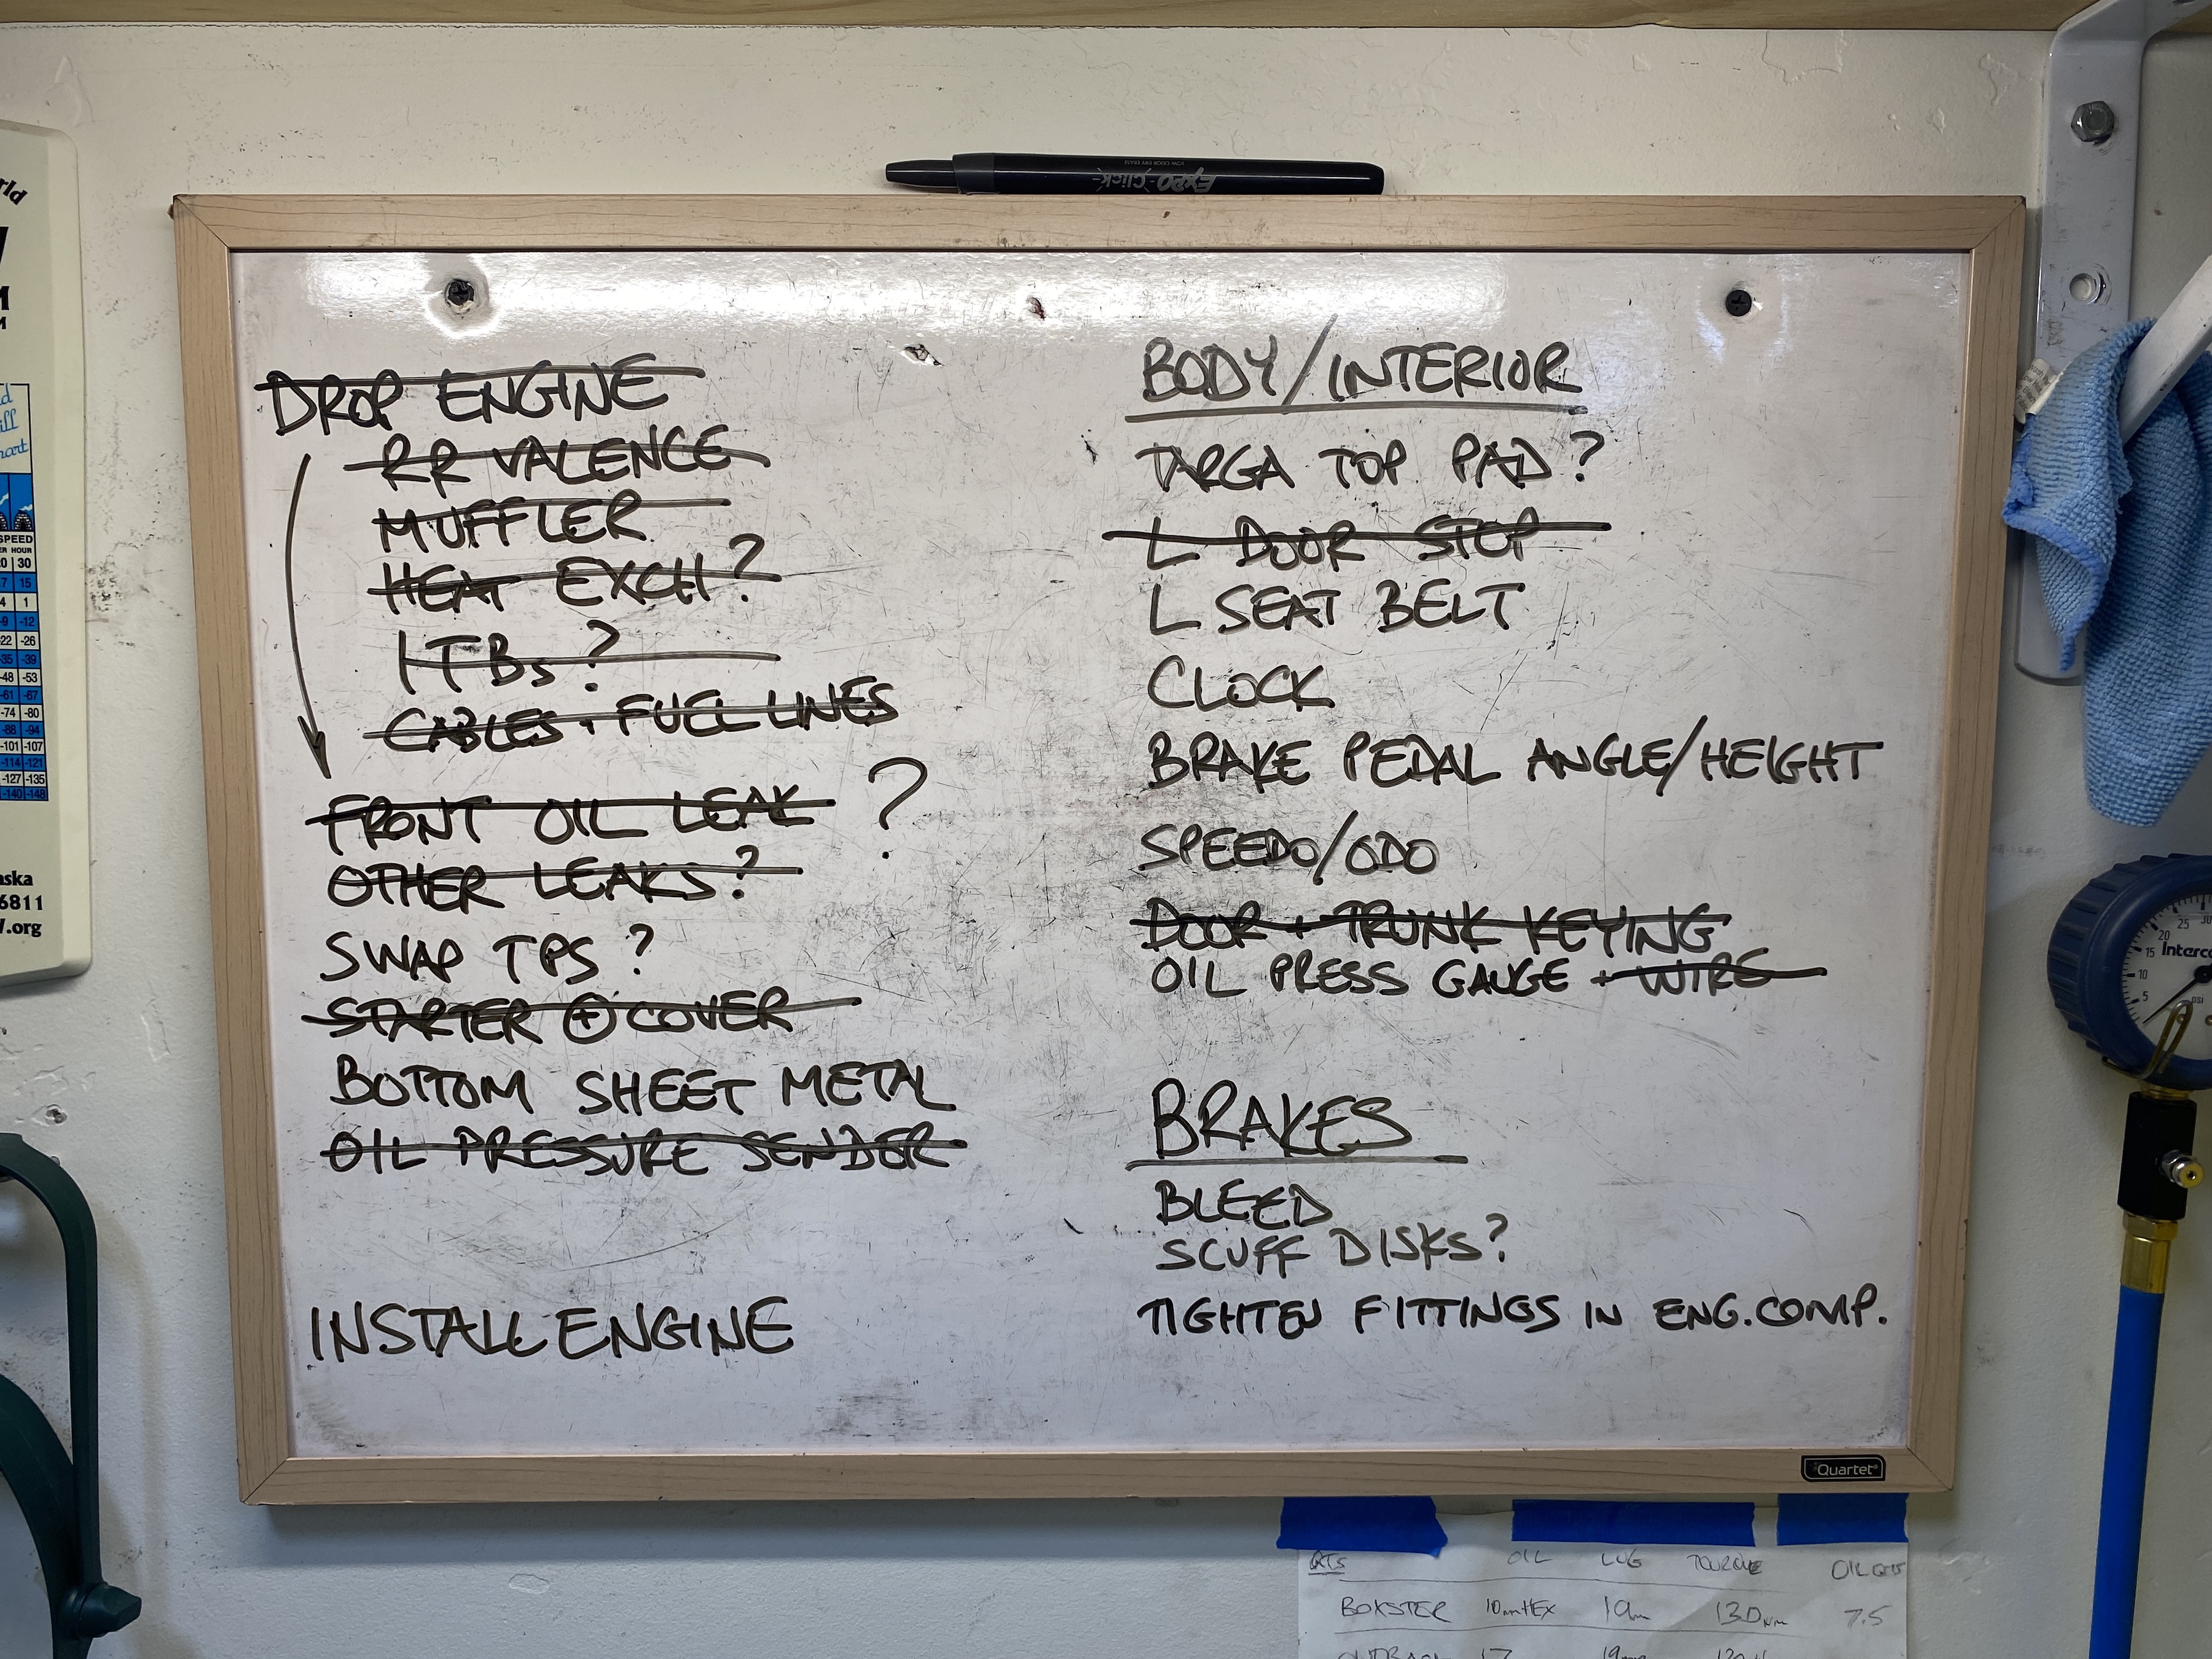 DROP ENGINE
RR VALENCE
MUFFLER
HEAT EXCH?
ITBs?
CABLES + FUEL LINES
FRONT OIL LEAK ?
OTHER LEAKS?
SWAP TPS?
STARTER + COVER
BOTTOM SHEET METAL
OIL PRESSURE SENDER
INSTALL ENGINE
BODY/INTERIOR
TARGA TOP PAD?
L DOOR STOP
L SEAT BELT
CLOCK
BRAKE PEDAL ANGLE/HEIGHT
SPEEDO/ODO
DOOR + TRUNK KEYING
OIL PRESS GAUGE + WIRE
BRAKES
BLEED
SCUFF DISKS?
TIGHTEN FITTINGS IN ENG. COMP.
Quartet
Expo Click
LOW ODOR DRY ERASE
SPEED
HOUR
0 30
7 15
4 1
-9 -12
-22 -26
-35 -39
-48 -53
-61 -67
-74 -80
-88 -94
-101 -107
-114 -121
-127 -135
-140 -148
6811
.org
25
20
15
10
5
PSI
OIL LUG TORQUE OIL QTS
BOXSTER 10mm HEX 19m 130 Nm 7.5